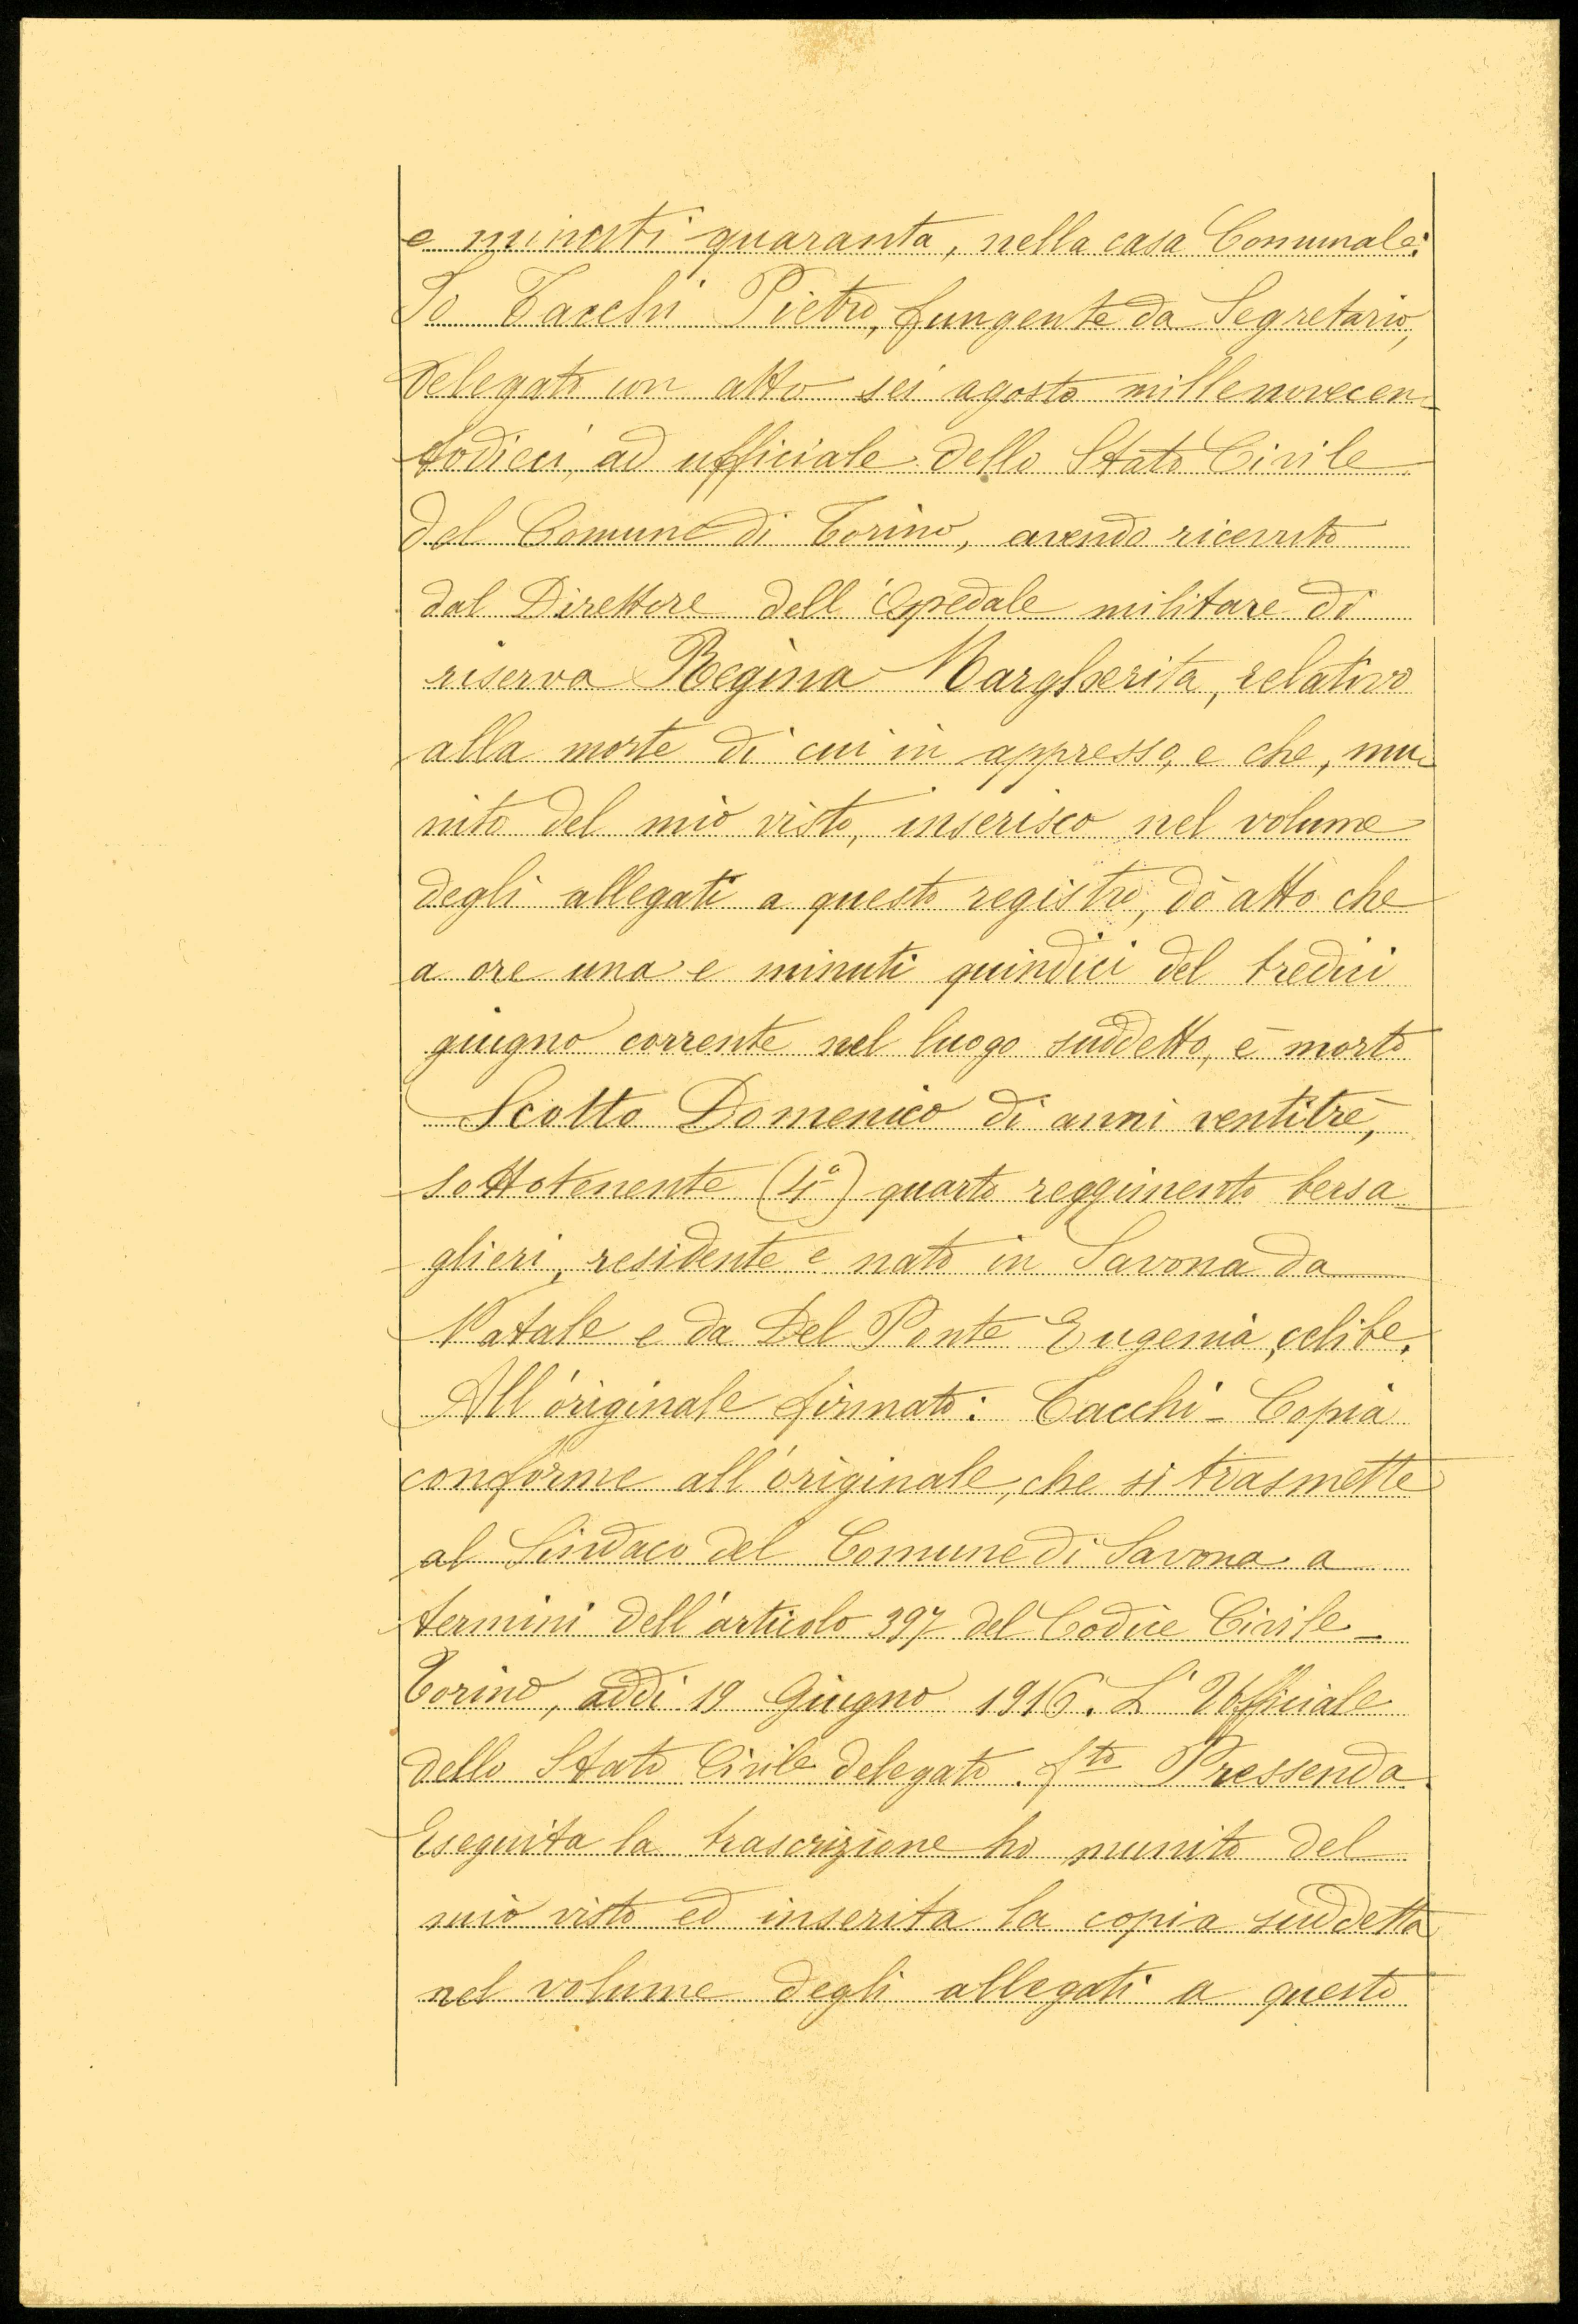 e minuti quaranta, nella casa Comunale:
Io Tacchi Pietro, fungente da Segretario,
delegato con atto sei agosto millenovecen-
todieci, ad ufficiale dello Stato Civile
del Comune di Torino, avendo ricevuto
dal Direttore dell'Ospedale militare di
riserva Regina Margherita, relativo
alla morte di cui in appresso, e che, mu-
nito del mio visto, inserisco nel volume
degli allegati a questo registro, dò atto che
a ore una e minuti quindici del tredici
giugno corrente nel luogo suddetto, è morto
Scotto Domenico di anni ventitrè,
sottotenente (4°) quarto reggimento bersa-
glieri, residente e nato in Savona da
Natale e da Del Ponte Eugenia, celibe.
All'originale firmato: Tacchi - Copia
conforme all'originale, che si trasmette
al Sindaco del Comune di Savona a
termini dell'articolo 397 del Codice Civile -
Torino, addì 19 Giugno 1916. L'Ufficiale
dello Stato Civile delegato. fto Pressenda.
Eseguita la trascrizione ho munito del
mio visto ed inserita la copia suddetta
nel volume degli allegati a questo